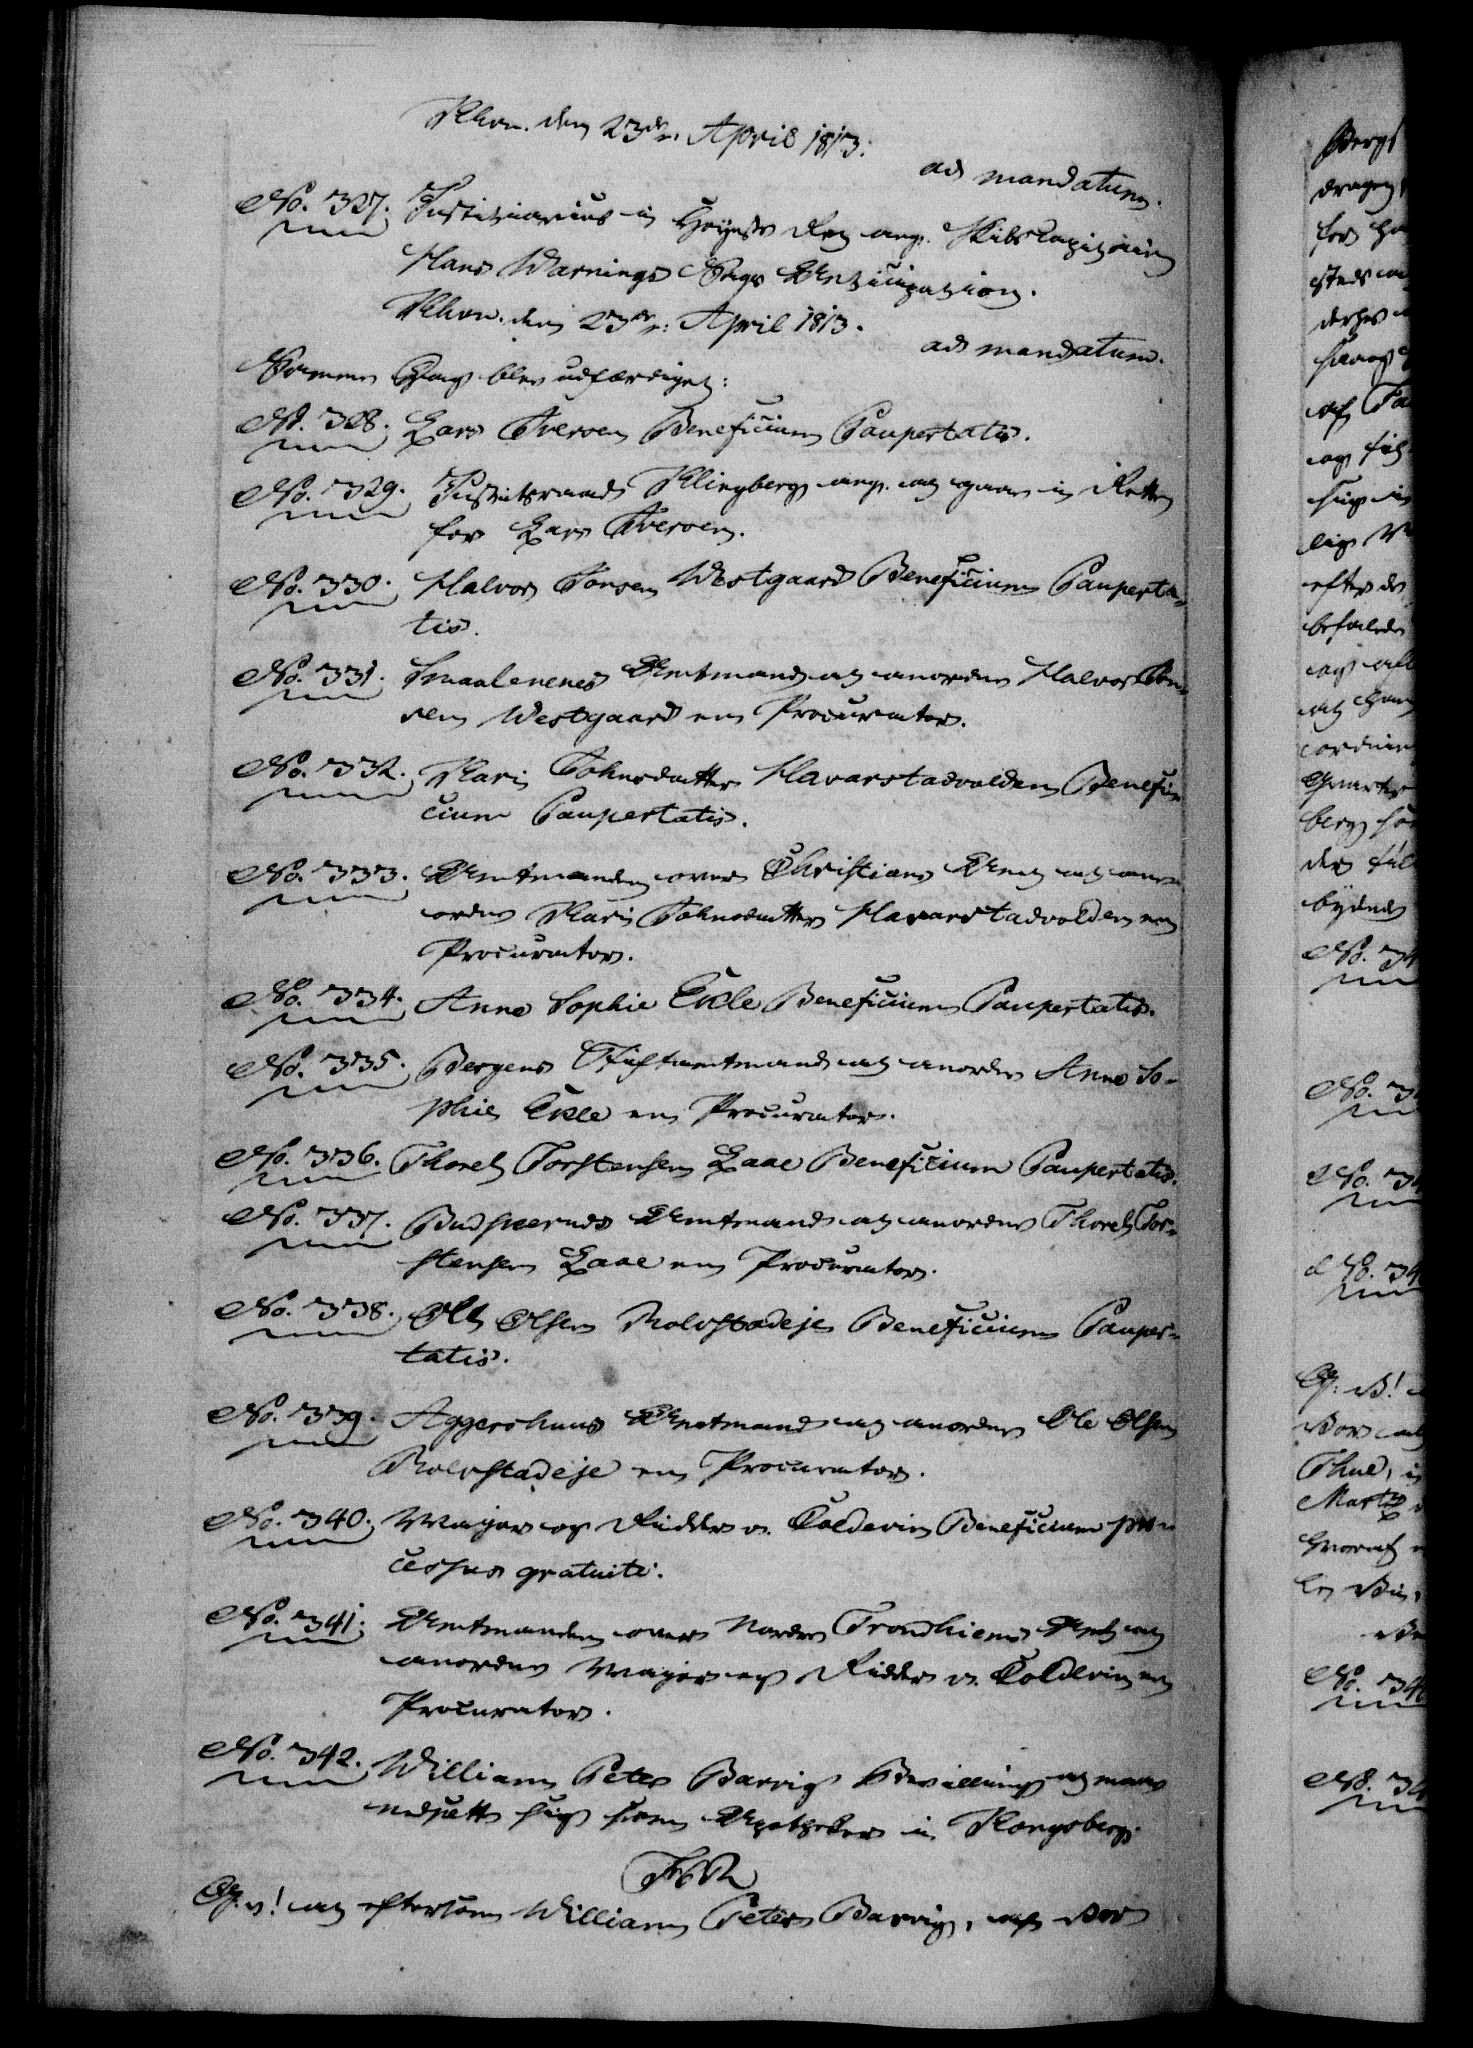 Khvn. den 23de April 1813.
ad mandatum.
No. 327. Justitiarius i Høyeste Ret ang. Skibscapitain
Hans Warnings Sags Anticipation.
Khvn. den 23de April 1813.
ad mandatum.
Samme Dag blev udfærdiget:
No. 328. Lars Iversen Beneficium Paupertatis.
No. 329. Justitsraad Klingberg ang. at gaae i Rette
for Lars Iversen.
No. 330. Halvor Jonsen Westgaard Beneficium Pauperta-
tis.
No. 331. Smaalenenes Amtmand at anordne Halvor Jon-
sen Westgaard en Procurator.
No. 332. Kari Johnsdatter Havarstadvolden Benefi-
cium Paupertatis.
No. 333. Amtmanden over Christians Amt at an-
ordne Kari Johnsdatter Havarstadvolden en
Procurator.
No. 334. Anne Sophie Emle Beneficium Paupertatis.
No. 335. Bergens Stiftamtmand at anordne Anne So-
phie en Procurator.
No. 336. Thorel Torstensen Laae Beneficium Paupertatis.
No. 337. Budskeruds Amtmand at anordne Thorel Tor-
stensen Laae en Procurator.
No. 338. Ole Olsen Rolvstadeje Beneficium Pauper-
tatis.
No. 339. Aggershuus Amtmand at anordne Ole Olsen
Rolvstadeje en Procurator.
No. 340. Major og Ridder v. Coldevin Beneficium pro-
cessus gratuiti.
No. 341. Amtmanden over Nordre Trondhiems Amt at
anordne Major og Ridder v. Coldevin en
Procurator.
No. 342. William Peter Barrig Bevilling at maae
nedsætte sig som Apotheker i Kongsberg.
F6R
G. v! at eftersom William Peter Barrig, af Vor